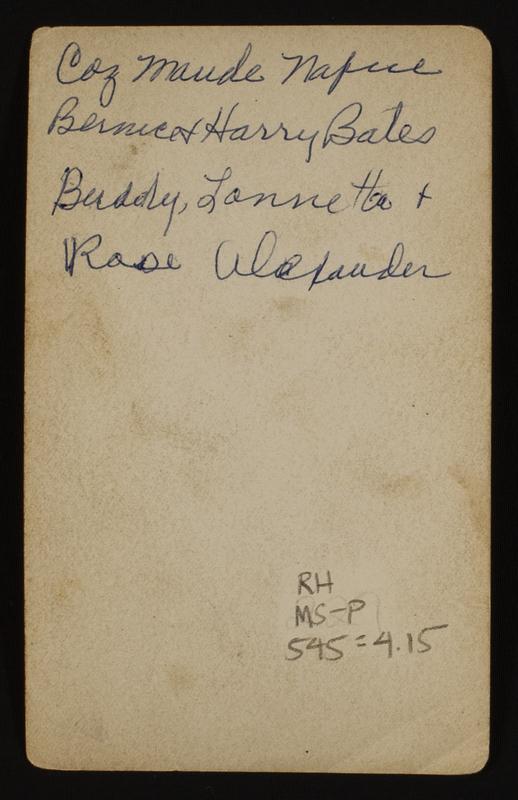 Coz Maude Napue
Bernice & Harry Bates
Buddy, Lonnetta +
Rose Alexander
RH
MS-P
545=4.15